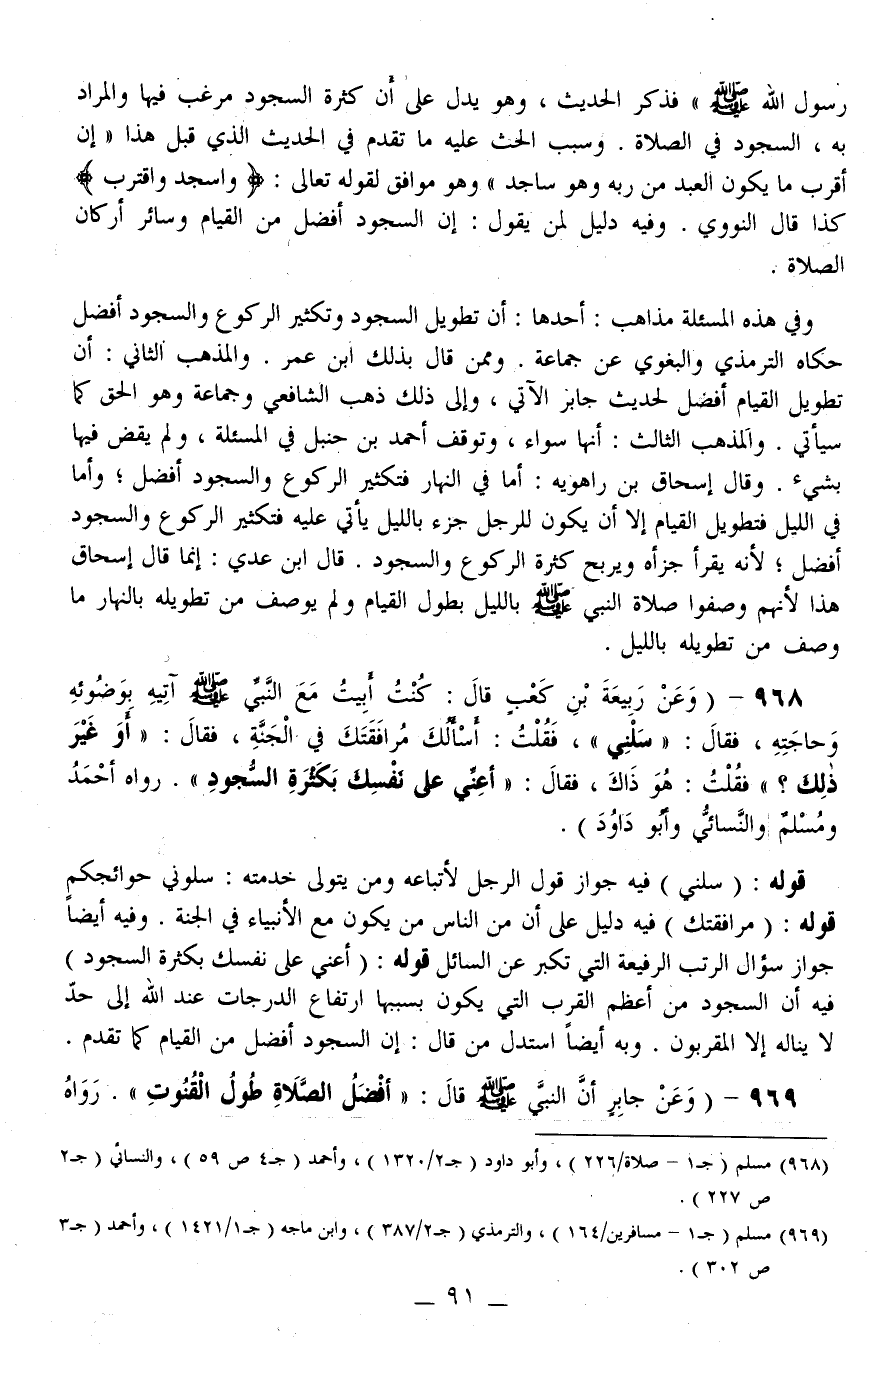 رسول الله ﷺ » فذكر الحديث ، وهو يدل على أن كثرة السجود مرغب فيها والمراد
به ، السجود في الصلاة . وسبب الحث عليه ما تقدم في الحديث الذي قبل هذا « إن
أقرب ما يكون العبد من ربه وهو ساجد » وهو موافق لقوله تعالى : ﴿ واسجد واقترب ﴾
كذا قال النووي . وفيه دليل لمن يقول : إن السجود أفضل من القيام وسائر أركان
الصلاة .
وفي هذه المسئلة مذاهب : أحدها : أن تطويل السجود وتكثير الركوع والسجود أفضل
حكاه الترمذي والبغوي عن جماعة . وممن قال بذلك ابن عمر . والمذهب الثاني : أن
تطويل القيام أفضل لحديث جابر الآتي ، وإلى ذلك ذهب الشافعي وجماعة وهو الحق كما
سيأتي . والمذهب الثالث : أنها سواء ، وتوقف أحمد بن حنبل في المسئلة ، ولم يقض فيها
بشيء . وقال إسحاق بن راهويه : أما في النهار فتكثير الركوع والسجود أفضل ؛ وأما
في الليل فتطويل القيام إلا أن يكون للرجل جزء بالليل يأتي عليه فتكثير الركوع والسجود
أفضل ؛ لأنه يقرأ جزأه ويربح كثرة الركوع والسجود . قال ابن عدي : إنما قال إسحاق
هذا لأنهم وصفوا صلاة النبي ﷺ بالليل بطول القيام ولم يوصف من تطويله بالنهار ما
وصف من تطويله بالليل .
٩٦٨ – ( وَعَنْ رَبِيعَةَ بْنِ كَعْبٍ قالَ : كُنْتُ أَبِيتُ مَعَ النَّبيِّ ﷺ آتِيهِ بِوَضُوئهِ
وَحاجَتِهِ ، فقالَ : « سَلْنِي » ، فَقُلْتُ : أَسْأَلُكَ مُرافَقَتَكَ في الْجَنَّةِ ، فقالَ : « أَوَ غَيْرَ
ذٰلِكَ ؟ » فقُلْتُ : هُوَ ذَاكَ ، فقالَ : « أعِنِّي على نَفْسِكَ بَكَثْرَةِ السُّجودِ » . رواه أحْمَدُ
ومُسْلمٌ والنَّسائيُّ وأبُو دَاوُدَ ) .
قوله : ( سلني ) فيه جواز قول الرجل لأتباعه ومن يتولى خدمته : سلوني حوائجكم
قوله : ( مرافقتك ) فيه دليل على أن من الناس من يكون مع الأنبياء في الجنة . وفيه أيضاً
جواز سؤال الرتب الرفيعة التي تكبر عن السائل قوله : ( أعني على نفسك بكثرة السجود )
فيه أن السجود من أعظم القرب التي يكون بسببها ارتفاع الدرجات عند الله إلى حدّ
لا يناله إلا المقربون . وبه أيضاً استدل من قال : إن السجود أفضل من القيام كما تقدم .
٩٦٩ – ( وَعَنْ جابِرٍ أنَّ النبيَّ ﷺ قالَ : « أفْضَلُ الصَّلَاةِ طُولُ الْقُنُوتِ » . رَوَاهُ
(٩٦٨) مسلم ( جـ١ – صلاة/٢٢٦ ) ، وأبو داود ( جـ٢/ ١٣٢٠ ) ، وأحمد ( جـ٤ ص ٥٩ ) ، والنسائي ( جـ٢
ص ٢٢٧ ) .
(٩٦٩) مسلم ( جـ١ – مسافرين/١٦٤ ) ، والترمذي ( جـ٣٨٧/٢ ) ، وابن ماجه ( جـ١٤٢١/١ ) ، وأحمد ( جـ٣
ص ٣٠٢ ) .
– ٩١ –